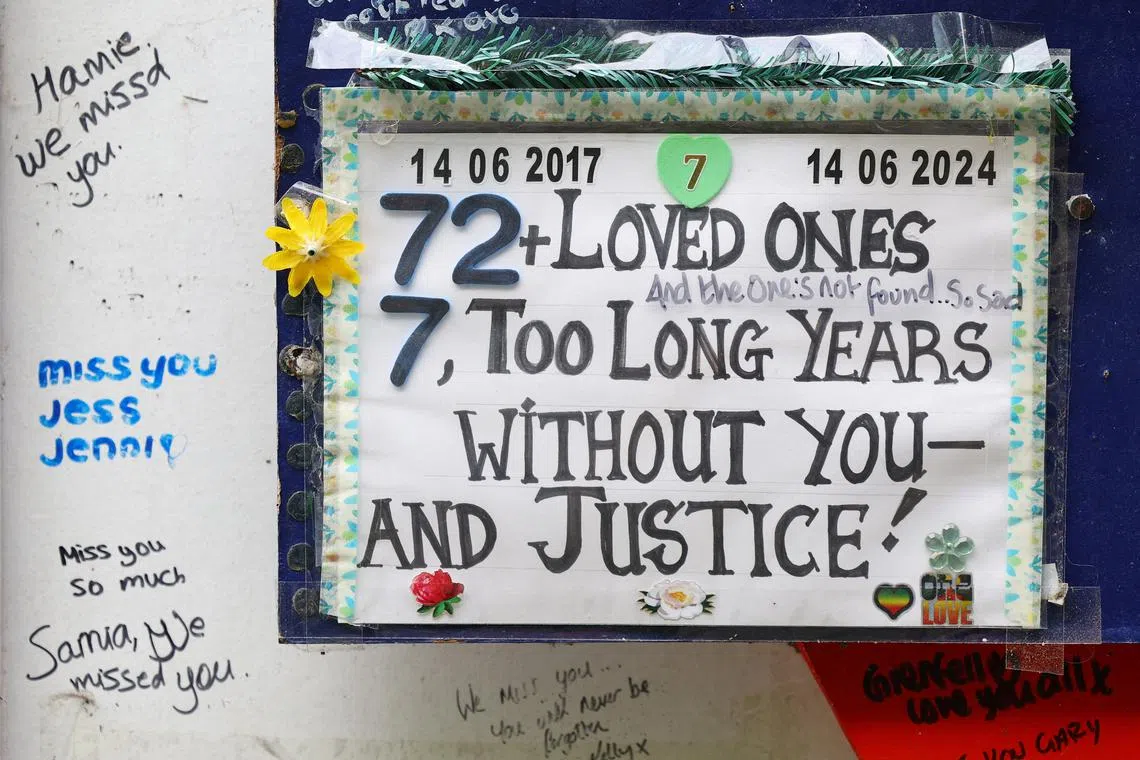 xoxo
Hamie,
we missd
you.
14 06 2017
7
14 06 2024
72+ LOVED ONES
And the one's not found... so sad
7, TOO LONG YEARS
WITHOUT YOU—
AND JUSTICE!
one
LOVE
miss you
Jess
Jennie
Miss you
so much
Samia, We
missed you.
We miss you...
you will never be
forgotten
Kelly x
Grenfell
love you all x
YOU GARY